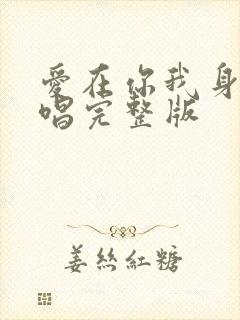 愛在你我身
唱完整版
姜丝紅糖